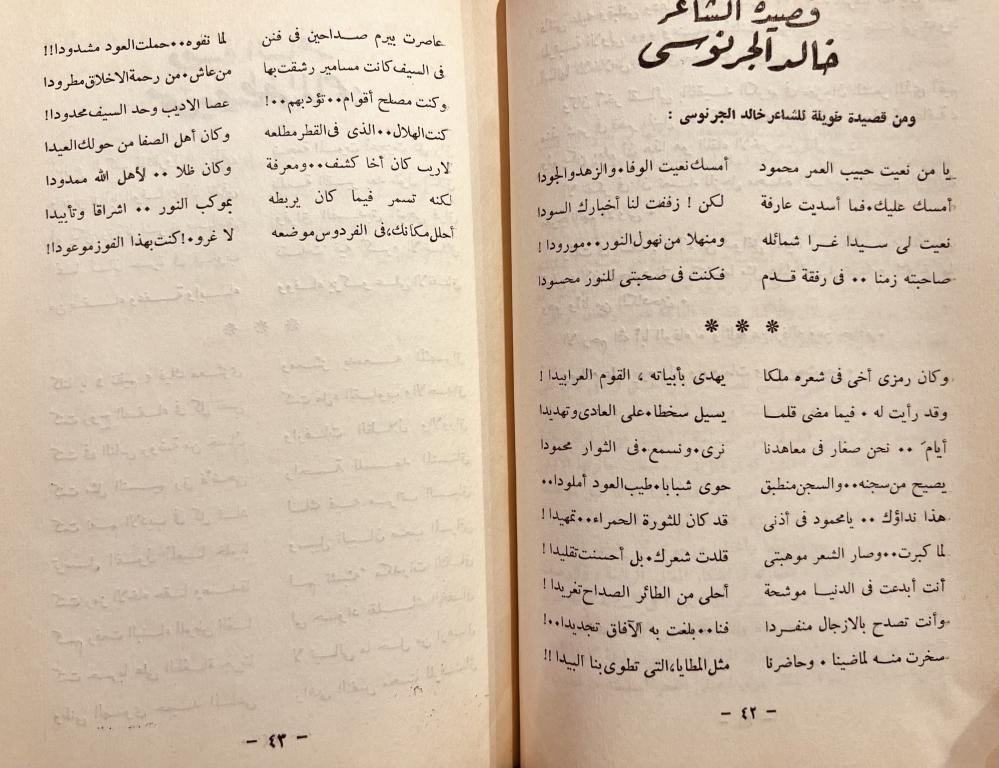 قصيدة الشاعر
خالد الجرنوسى
ومن قصيدة طويلة للشاعر خالد الجرنوسى :
يا من نعيت حبيب العمر محمود أمسك نعيت الوفا، والزهد والجودا
أمسك عليك، فما أسديت عارفة لكن ! زففت لنا أخبارك السودا
نعيت لى سيدا غرا شمائله ومنهلا من نهول النور .. مورودا !
صاحبته زمنا .. فى رفقة قدم فكنت فى صحبتى للنور محسودا
* * *
وكان رمزى أخى فى شعره ملكا يهدى بأبياته ، القوم العرابيدا !
وقد رأيت له . فيما مضى قلما يسيل سخطا . على العادى وتهديدا
أيام .. نحن صغار فى معاهدنا نرى . ونسمع . فى الثوار محمودا
يصيح من سجنه .. والسجن منطبق حوى شبابا . طيب العود أملودا ..
هذا نداؤك .. يا محمود فى أذنى قد كان للثورة الحمراء .. تمهيدا !
لما كبرت .. وصار الشعر موهبتى قلدت شعرك . بل أحسنت تقليدا !
أنت أبدعت فى الدنيا موشحة أحلى من الطائر الصداح تغريدا !
وأنت تصدح بالازجال منفردا فنا .. بلغت به الآفاق تجديدا .. !
سخرت منه لماضينا . وحاضرنا مثل المطايا، التى تطوى بنا البيدا !!
- ٤٢ -
عاصرت بيرم صداحين فى فنن لما نفوه .. حملت العود مشدودا !!
فى السيف كانت مسامير رشقت بها من عاش . من رحمة الاخلاق مطرودا
وكنت مصلح أقوام .. تؤدبهم .. ! عصا الاديب وحد السيف محدودا !
كنت الهلال .. الذى فى القطر مطلعه وكان أهل الصفا من حولك العيدا
لا ريب كان أخا كشف .. ومعرفة وكان ظلا .. لأهل الله ممدودا
لكنه تسمر فيما كان يربطه بموكب النور .. اشراقا وتأييدا
أحلل مكانك، فى الفردوس موضعه لا غرو ! كنت بهذا الفوز موعودا !
- ٤٣ -